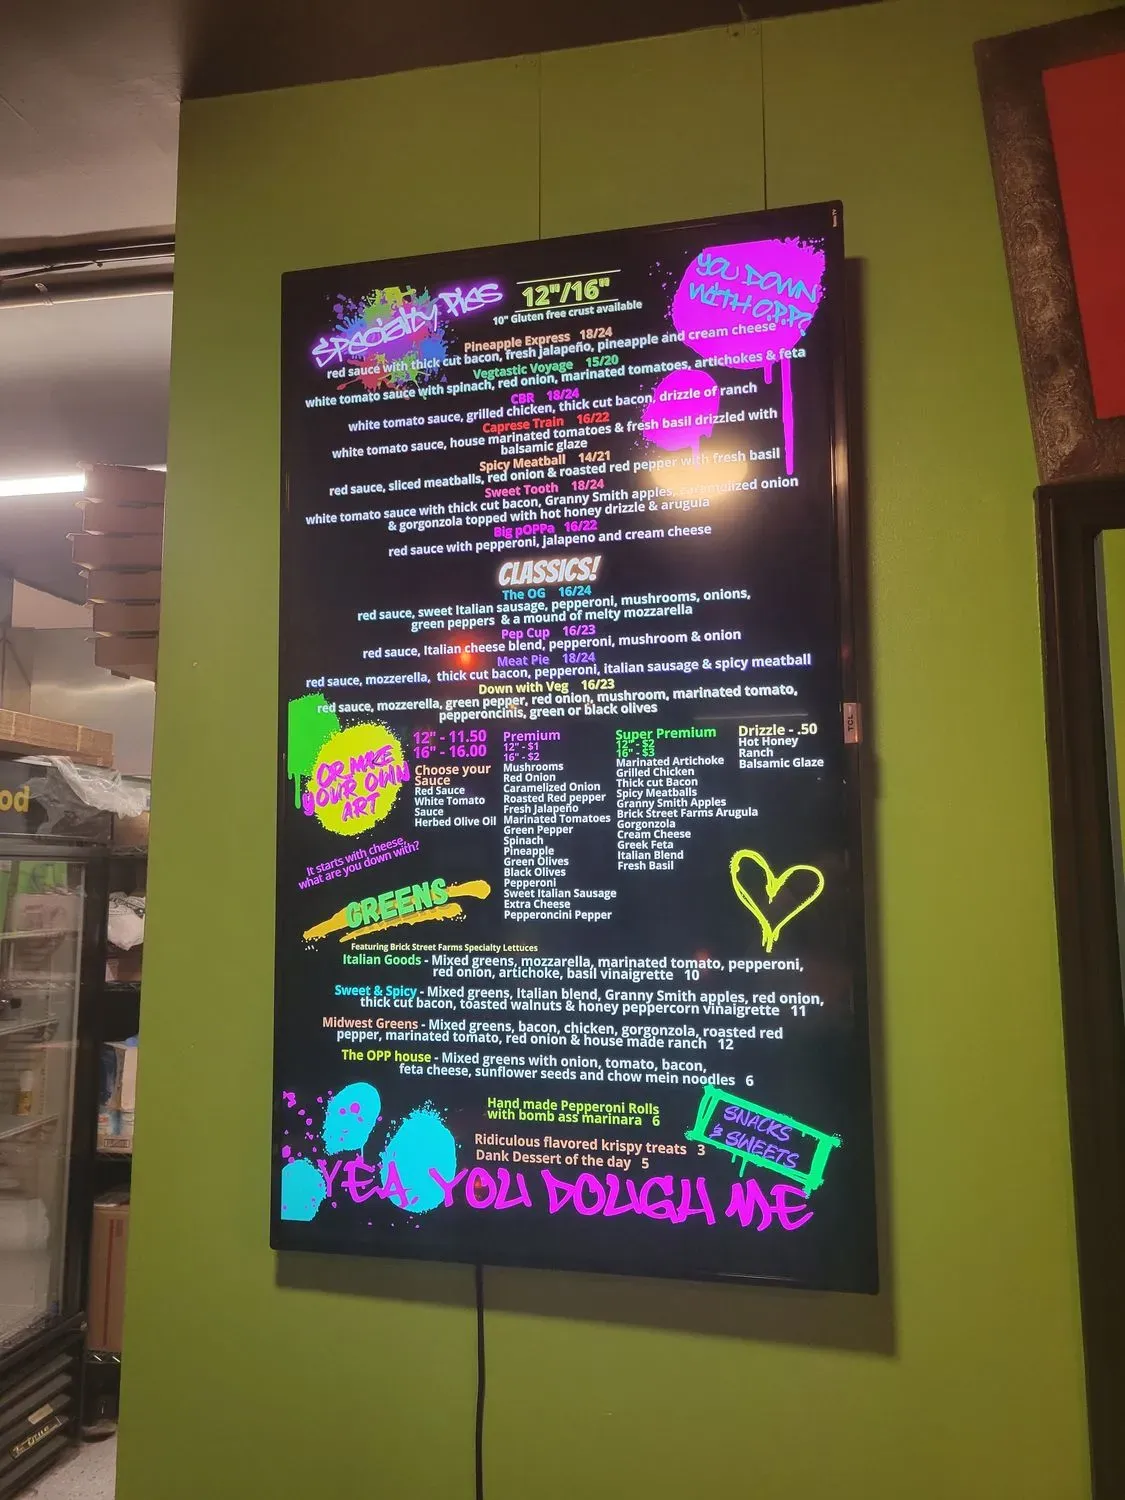 SPECIALTY PIES
12"/16"
10" Gluten free crust available
YOU DOWN
WITH O.P.P?
Pineapple Express 18/24
red sauce with thick cut bacon, fresh jalapeño, pineapple and cream cheese
Vegtastic Voyage 15/20
white tomato sauce with spinach, red onion, marinated tomatoes, artichokes & feta
CBR 18/24
white tomato sauce, grilled chicken, thick cut bacon, drizzle of ranch
Caprese Train 16/22
white tomato sauce, house marinated tomatoes & fresh basil drizzled with
balsamic glaze
Spicy Meatball 14/21
red sauce, sliced meatballs, red onion & roasted red pepper with fresh basil
Sweet Tooth 18/24
white tomato sauce with thick cut bacon, Granny Smith apples, caramelized onion
& gorgonzola topped with hot honey drizzle & arugula
Big pOPPa 16/22
red sauce with pepperoni, jalapeno and cream cheese
CLASSICS!
The OG 16/24
red sauce, sweet Italian sausage, pepperoni, mushrooms, onions,
green peppers & a mound of melty mozzarella
Pep Cup 16/23
red sauce, Italian cheese blend, pepperoni, mushroom & onion
Meat Pie 18/24
red sauce, mozzerella, thick cut bacon, pepperoni, italian sausage & spicy meatball
Down with Veg 16/23
red sauce, mozzerella, green pepper, red onion, mushroom, marinated tomato,
pepperoncinis, green or black olives
OR MAKE
YOUR OWN
ART
It starts with cheese,
what are you down with?
12" - 11.50
16" - 16.00
Choose your
Sauce
Red Sauce
White Tomato
Sauce
Herbed Olive Oil
Premium
12" - $1
16" - $2
Mushrooms
Red Onion
Caramelized Onion
Roasted Red pepper
Fresh Jalapeño
Marinated Tomatoes
Green Pepper
Spinach
Pineapple
Green Olives
Black Olives
Pepperoni
Sweet Italian Sausage
Extra Cheese
Pepperoncini Pepper
Super Premium
12" - $2
16" - $3
Marinated Artichoke
Grilled Chicken
Thick cut Bacon
Spicy Meatballs
Granny Smith Apples
Brick Street Farms Arugula
Gorgonzola
Cream Cheese
Greek Feta
Italian Blend
Fresh Basil
Drizzle - .50
Hot Honey
Ranch
Balsamic Glaze
TCL
GREENS
Featuring Brick Street Farms Specialty Lettuces
Italian Goods - Mixed greens, mozzarella, marinated tomato, pepperoni,
red onion, artichoke, basil vinaigrette 10
Sweet & Spicy - Mixed greens, Italian blend, Granny Smith apples, red onion,
thick cut bacon, toasted walnuts & honey peppercorn vinaigrette 11
Midwest Greens - Mixed greens, bacon, chicken, gorgonzola, roasted red
pepper, marinated tomato, red onion & house made ranch 12
The OPP house - Mixed greens with onion, tomato, bacon,
feta cheese, sunflower seeds and chow mein noodles 6
Hand made Pepperoni Rolls
with bomb ass marinara 6
SNACKS
& SWEETS
Ridiculous flavored krispy treats 3
Dank Dessert of the day 5
YEA YOU DOUGH ME
od
True